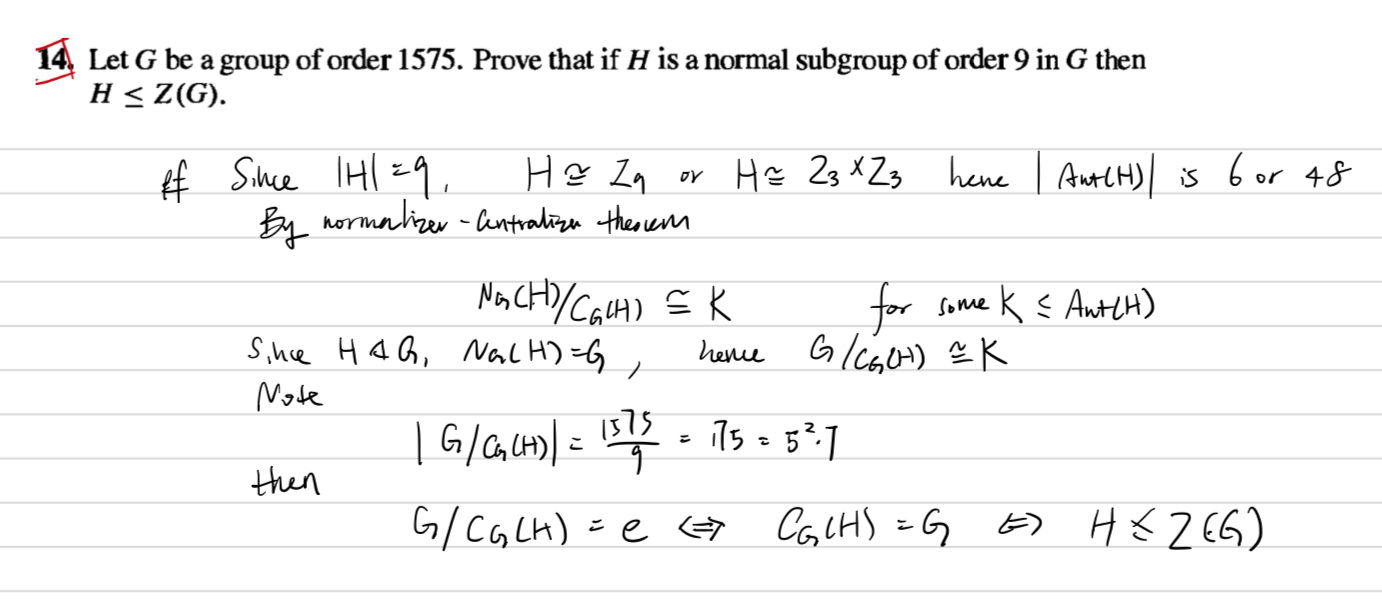 14. Let G be a group of order 1575. Prove that if H is a normal subgroup of order 9 in G then
H ≤ Z(G).
pf Since |H| = 9, H ≅ Z₉ or H ≅ Z₃ × Z₃ hence |Aut(H)| is 6 or 48
By normalizer - Centralizer theorem
N_G(H)/C_G(H) ≅ K for some K ≤ Aut(H)
Since H ⊲ G, N_G(H) = G, hence G/C_G(H) ≅ K
Note
|G/C_G(H)| = 1575/9 = 175 = 5²·7
then
G/C_G(H) = e ⇔ C_G(H) = G ⇔ H ≤ Z(G)